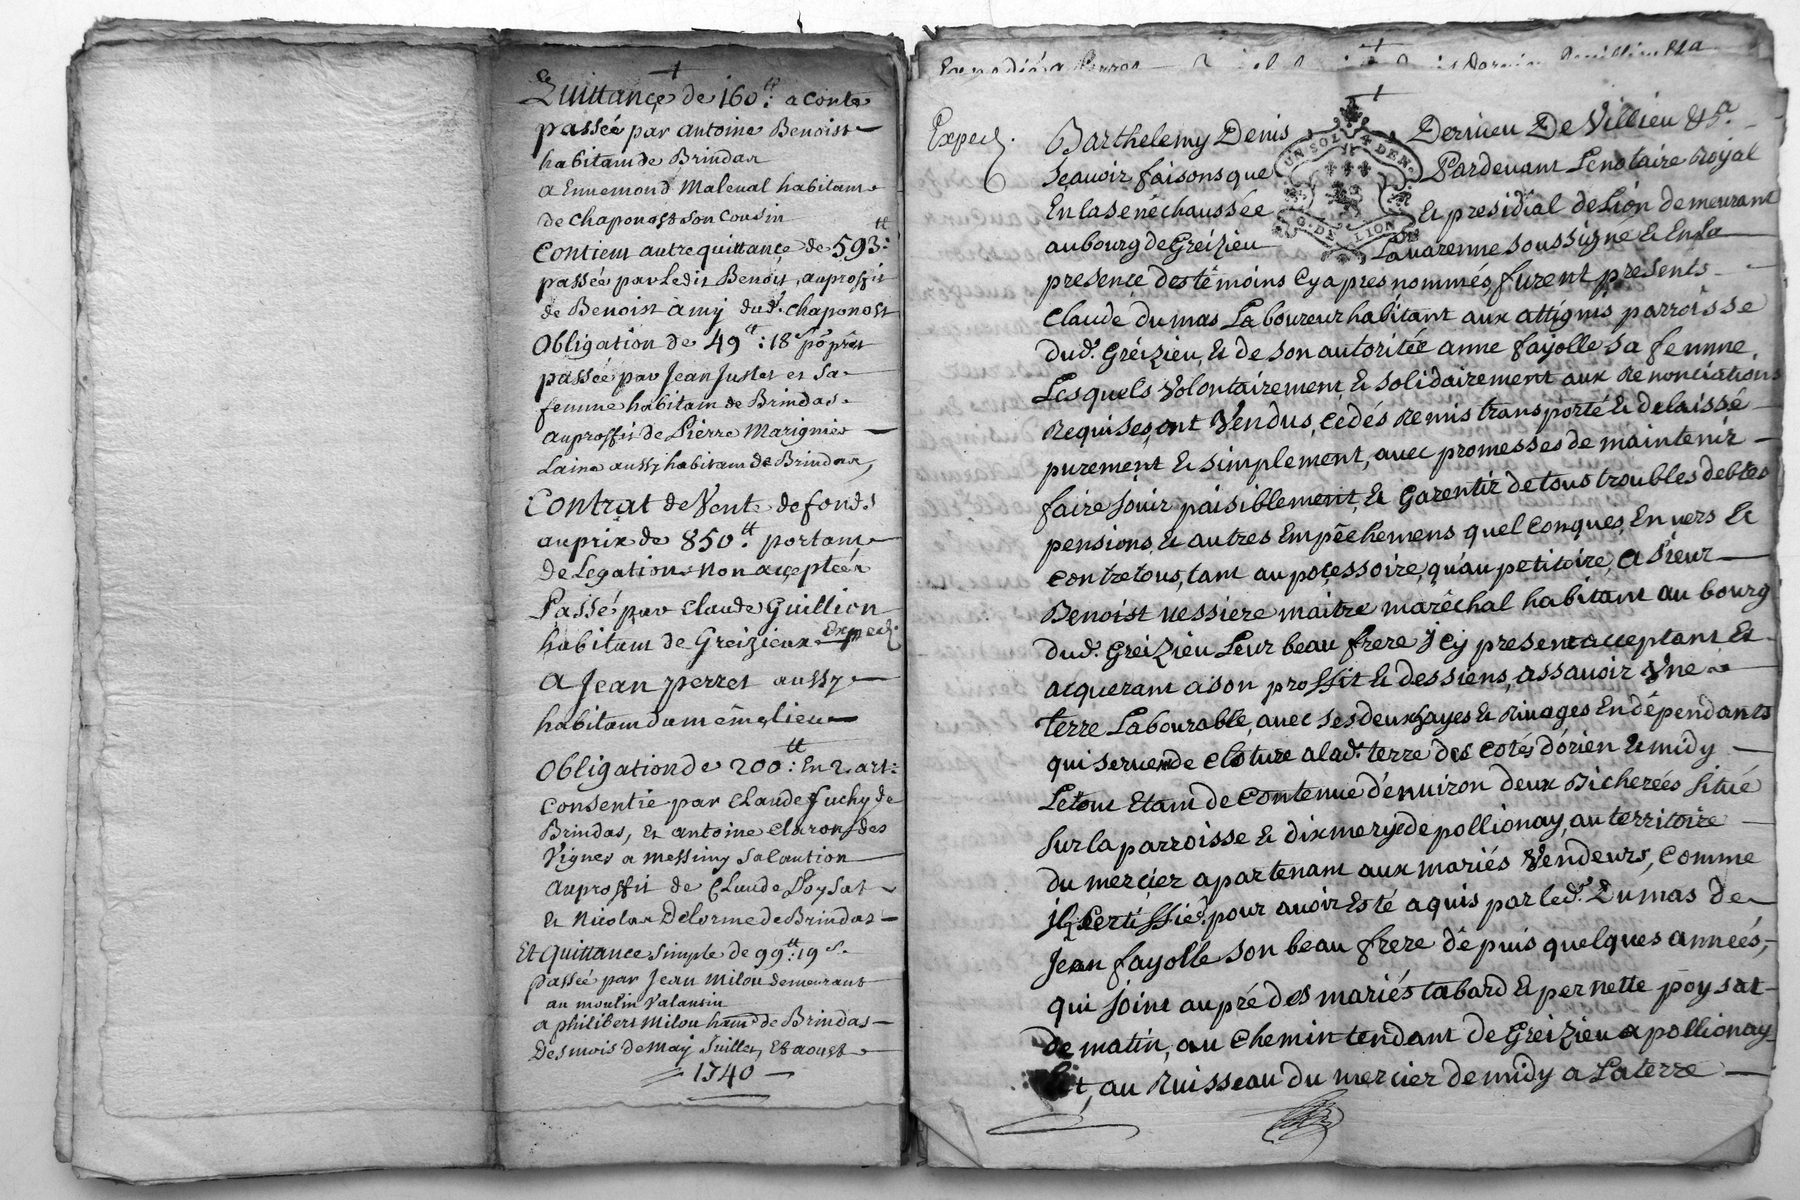 Quittance de 160tt: a conte
passée par antoine Benoist
habitant de Brindas
a Ennemond Maleval habitant
de chaponost son cousin
Contient autre quittance de 593tt:
passée par Ledit Benoist, au proffit
de Benoist amy dud. chaponost
Obligation de 49tt: 18s po prêt
passée par Jean Juster et sa
femme habitant de Brindas
au proffit de Pierre Marignier
Laine aussy habitant de Brindas,
Contrat de Vente de fonds
au prix de 850tt: portant
de Legations non acceptées
Passé par Claude Guillion
habitant de Greizieux Exped.
a Jean perret aussy
habitant du même lieu
Obligation de 200tt: En 2. art:
consentie par Claude Juchy de
Brindas, Et antoine Claron des
Vignes a messimy sa caution
au proffit de Claude Poysat
Et Nicolas Delorme de Brindas
Et Quittance simple de 99tt: 19s.
passée par Jean Milou demeurant
au moulin Valansin
a philibert Milou hant de Brindas
Des mois de may Juillet, Et aoust
1740
Exped.
Barthelemy Denis Derrieu De Villieu &a.
Sçavoir faisons que Pardevant Le notaire Royal
UN SOL 4 DEN.
G. DE LION
En la senêchaussée Et presidial de Lion demeurant
au bourg de Greizieu Lavarenne soussigné & En la
presence des têmoins cy apres nommés, furent présents
Claude dumas Laboureur habitant aux attignis parroisse
dud. Gréizieu, Et de son autoritée anne fayolle sa femme,
Lesquels volontairement, & solidairement aux Renonciations
Requises, ont Vendus, cedés remis transporté & delaissé
purement & simplement, avec promesses de maintenir
faire Jouir paisiblement, & Garentir de tous troubles debtes
pensions, & autres Empêchemens quelconques, En vers Et
contre tous, tant au poçessoire, qu'au petitoire, a Sieur
Benoist vessiere maitre marêchal habitant au bourg
dud. Gréizieu Leur beau frere jcy present acceptant Et
acquerant a son proffit & des siens, assavoir Vne
terre Labourable, avec ses deux hayes & Rivages En dépendants
qui servent de cloture a lad. terre des cotés d'orien & midy
Le tout Etant de contenue d'environ deux Bicherées Situé
Sur la parroisse & dixmerye de pollionay, au territoire
du merçier apartenant aux mariés Vendeurs, comme
jls certiffie, pour avoir Esté aquis par led. Dumas de
Jean fayolle son beau frere depuis quelques années,
qui Joint au pré des mariés tabard & pernette poysat
de matin, au chemin tendant de Greizieu a pollionay
au Ruisseau du mercier de midy a La terre